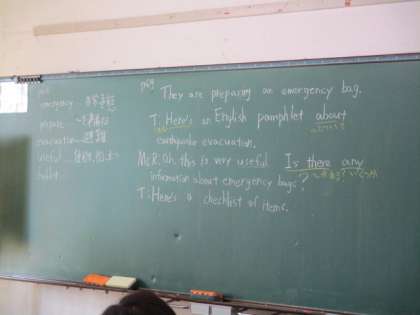 emergency
prepare
evacuation 避難
useful
p69
They are preparing an emergency bag.
T: Here's an English pamphlet about
earthquake evacuation.
Ms. R: Oh, this is very useful. Is there any
information about emergency bags?
T: Here's a checklist of items.